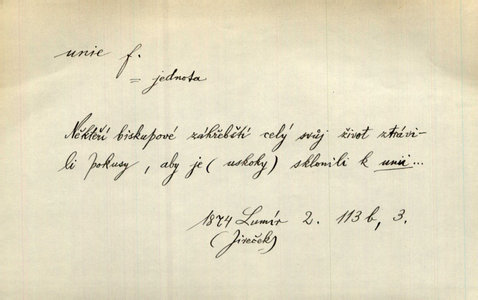 unie f.
= jednota
Někteří biskupové záhřebští celý svůj život ztrávi-
li pokusy, aby je (uskoky) sklonili k unii...
1874 Lumír 2. 113 b, 3.
(Jireček)